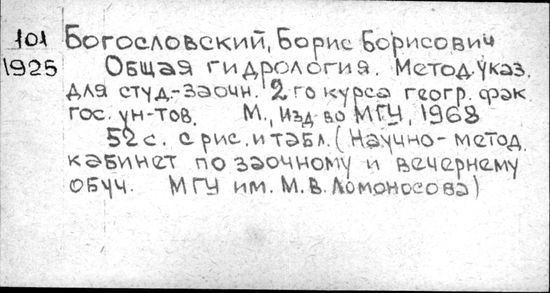 101
1925
Богословский, Борис Борисович
Общая гидрология. Метод.указ.
для студ.-заочн. 2го курса геогр. фак
гос. ун-тов. М., Изд-во МГУ, 1968
52 с. с рис. и табл. (Научно-метод.
кабинет по заочному и вечернему
обуч. МГУ им. М.В. Ломоносова)